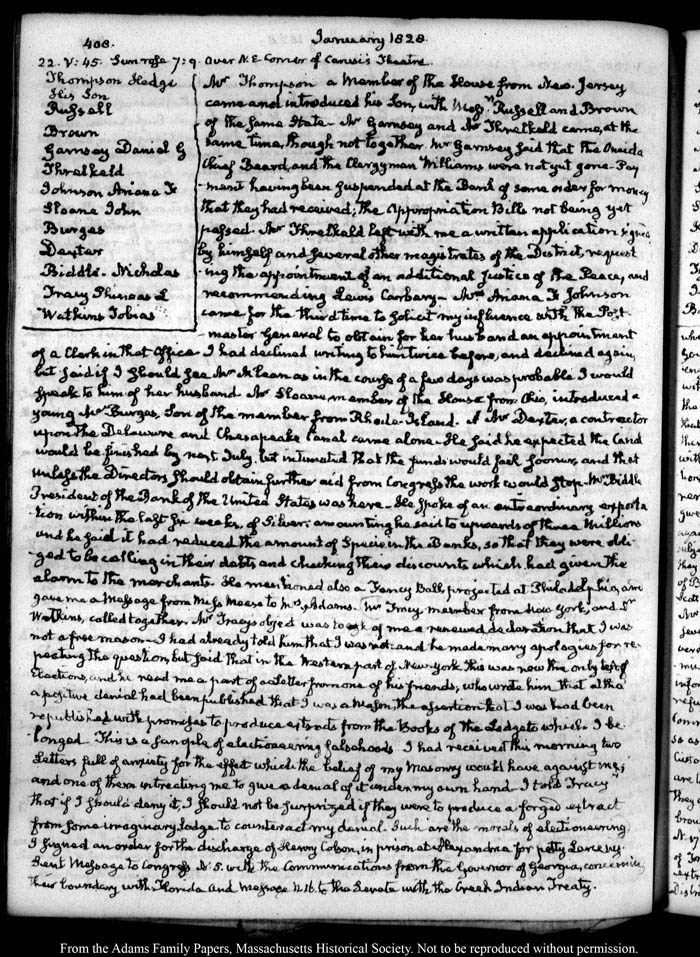 408.
January 1828.
22. V:45. Sun rose 7:9. over N.E. Corner of Carusi's Theatre.
Thompson Hedge
His Son
Russell
Brown
Garnsey Daniel G
Threlkeld
Johnson Ariana F
Sloane John
Burges
Dexter
Biddle. Nicholas
Tracy Phineas L
Watkins Tobias
Mr Thompson a member of the House from New-Jersey
came and introduced his Son, with Messrs Russell and Brown
of the same State. Mr Garnsey and Mr Threlkeld came, at the
same time, though not together. Mr Garnsey said that the Oneida
Chief Beard, and the Clergyman Williams were not yet gone. Pay
-ment having been suspended at the Bank of some order for money
that they had received; the Appropriation Bills not being yet
passed. Mr Threlkeld left with me a written application signed
by himself and several other magistrates of the District, request
-ing the appointment of an additional Justice of the Peace, and
recommending Lewis Carbery. Mrs Ariana F Johnson
came for the third time to solicit my influence with the Post-
master General to obtain for her husband an appointment
of a Clerk in that Office. I had declined writing to him twice before, and declined again,
but said if I should see Mr McLean as in the course of a few days was probable I would
speak to him of her husband. Mr Sloane, member of the House from Ohio, introduced a
young Mr Burges, Son of the member from Rhode-Island. A Mr Dexter, a contractor
upon the Delaware and Chesapeake Canal came alone. He said he expected the Canal
would be finished by next July, but intimated that the funds would fail sooner, and that
unless the Directors should obtain further aid from Congress the work would stop. Mr Biddle
President of the Bank of the United States was here. He spoke of an extraordinary exporta
-tion within the last six weeks, of Silver; amounting he said to upwards of three Millions
and he said it had reduced the amount of Specie in the Banks, so that they were obli-
-ged to be calling in their debts and checking their discounts which had given the
alarm to the merchants. He mentioned also a Fancy Ball, projected at Philadelphia, and
gave me a Message from Miss Mease to Mrs Adams. Mr Tracy member from New York, and Dr
Watkins, called together. Mr Tracy's object was to ask of me a renewed declaration that I was
not a free mason. I had already told him that I was not: and he made many apologies for re-
peating the question, but said that in the Western part of New-York this was now the only test of
Elections, and he read me a part of a Letter from one of his friends, who wrote him that altho'
a positive denial had been published that I was a Mason, the assertion that I was had been
republished with promises to produce extracts from the Books of the Lodge to which I be-
-longed. This is a sample of electioneering falsehoods. I had received this morning two
Letters full of anxiety for the effect which the belief of my Masonry would have against me;
and one of them intreating me to give a denial of it under my own hand. I told Tracy
that if I should deny it, I should not be surprized if they were to produce a forged extract
from some imaginary Lodge to counteract my denial. Such are the morals of electioneering.
I signed an order for the discharge of Henry Cobon, in prison at Alexandria for petty Larceny.
Sent Message to Congress N. 5. with the Communications from the Governor of Georgia, concerning
their boundary with Florida and Message N. 16. to the Senate with the Creek Indian Treaty.
From the Adams Family Papers, Massachusetts Historical Society. Not to be reproduced without permission.